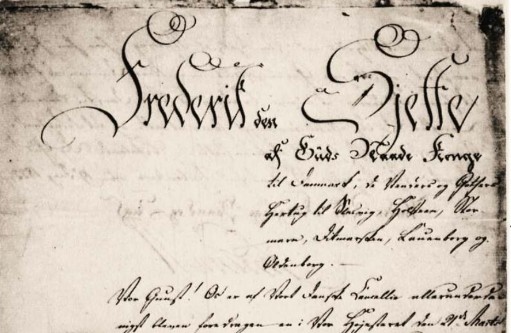 Frederik den Sjette
af Guds Naade Konge
til Danmark, de Venders og Gothers
Hertug til Slesvig, Holsteen, Stor
marn, Ditmarsken, Lauenborg og
Oldenborg. —
Vor Gunst! Os er af Vort danske Cancellie allerunderda
nigst bleven foredragen en i Vor Høiesteret den 21de Martii